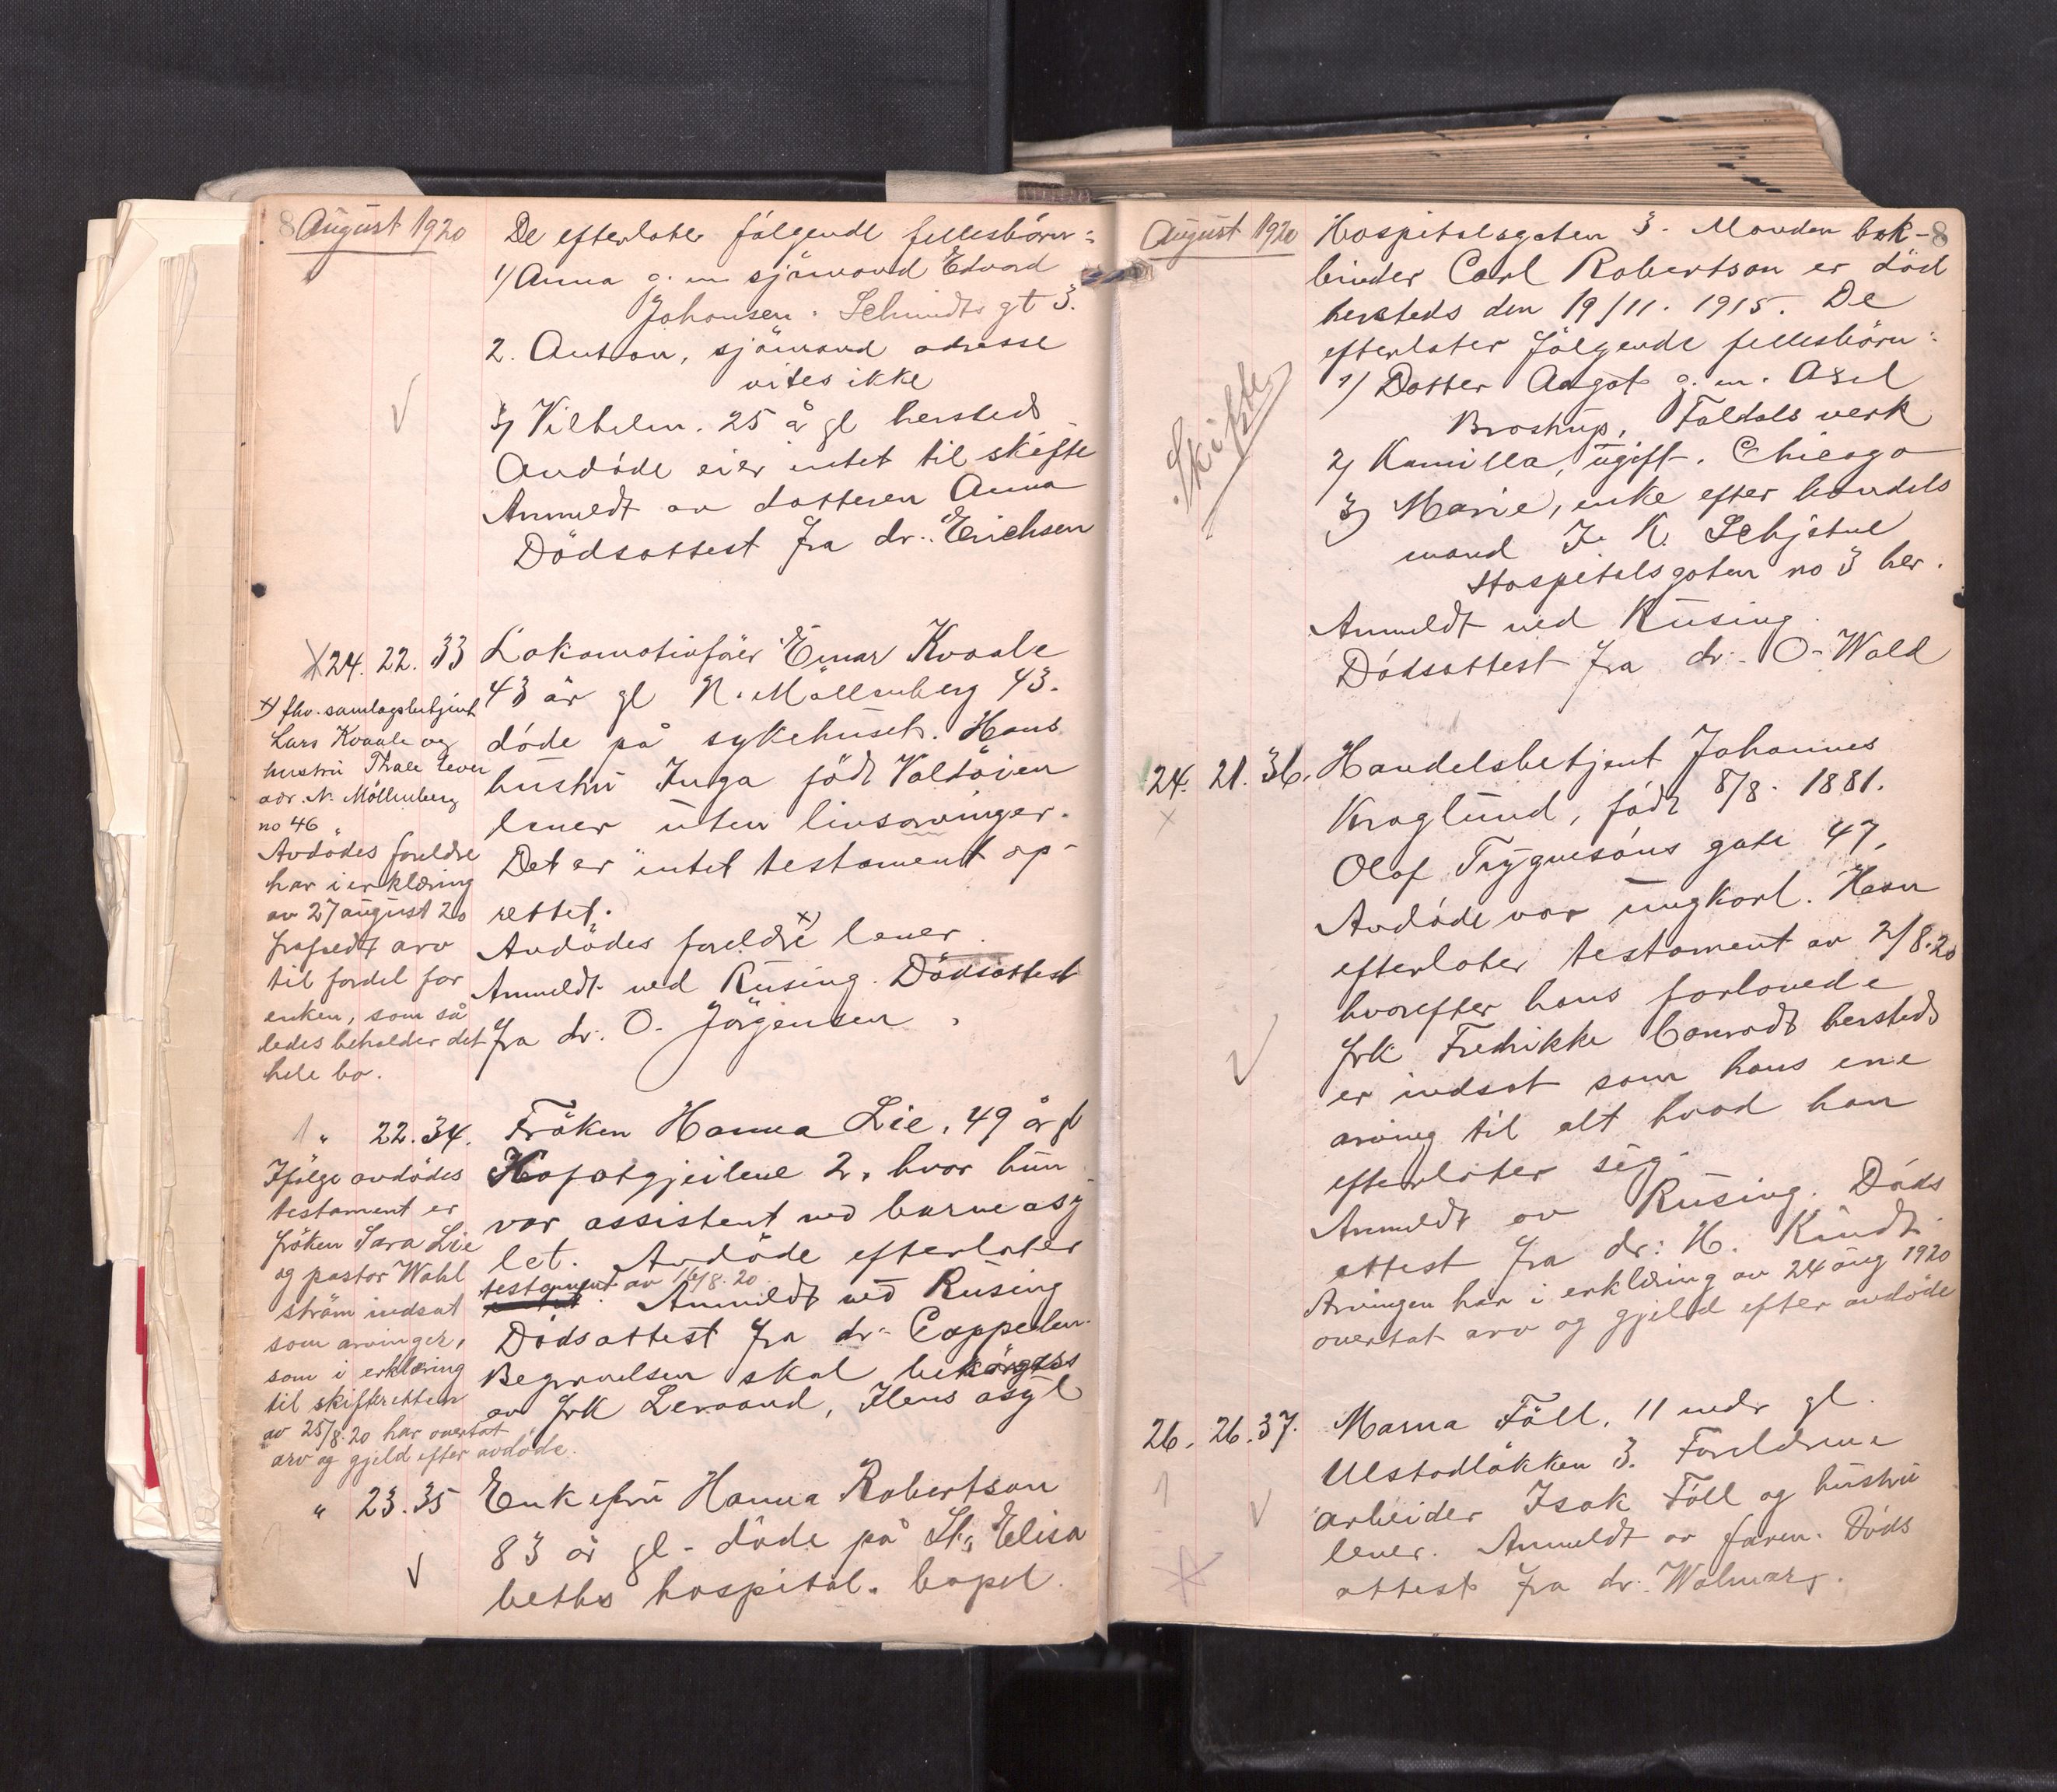 8 August 1920
De efterlater følgende fellesbörn:
1/ Anna g. m. sjömand Edvard
Johansen. Schmidts gt 3.
2. Anton, sjömand adresse
vites ikke
3/ Vilhelm. 25 å gl hersteds
Avdöde eier intet til skifte
Anmeldt av datteren Anna
Dödsattest fra dr. Erichsen
24. 22. 33 Lokomotivförer Einar Kvaale
43 år gl N. Möllenberg 43.
döde på sykehuset. Hans
hustru Inga född Voldöien
lever uten livsarvinger.
Det er intet testament op-
rettet.
Avdödes foreldre x) lever.
Anmeldt ved Rusing. Dödsattest
fra dr. O. Jörgensen.
x) fhv. samlagsbetjent
Lars Kvaale og
hustru Thale lever
adr. N. Möllenberg
no 46
Avdödes foreldre
har i erklæring
av 27 august 20
frafaldt arv
til fordel for
enken, som så
ledes beholder det
hele bo.
1 " 22. 34. Fröken Hanna Lie. 49 år gl
Kofotgjeitene 2, hvor hun
var assistent ved barneasy
let. Avdöde efterlater
testament av 16/8. 20. Anmeldt ved Rusing
Dödsattest fra dr. Cappelen.
Begravelsen skal bekörges
av frk Levaand, Ilens asyl
Ifölge avdödes
testament er
fröken Sara Lie
og pastor Wahl
ström indsat
som arvinger,
som i erklæring
til skifteretten
av 25/8. 20 har overtat
arv og gjeld efter avdöde.
" 23. 35 Enkefru Hanna Robertson
83 år gl. döde på St. Elisa
beths hospital. bopel
August 1920
8
Hospitalsgaten 3. Manden bok-
binder Carl Robertson er död
hersteds den 19/11. 1915. De
efterlater fölgende fellesbörn:
1/ Datter Aagot g. m. Axel
Brostrup, Foldals verk
2/ Kamilla, ugift. Chicago
3/ Marie, enke efter handels
mand J. K. Schjetne
Hospitalsgaten no 3 her.
Anmeldt ved Rusing.
Dödsattest fra dr. O. Wald
Skifte
24. 21. 36. Handelsbetjent Johannes
Kroglund, född 8/8. 1881.
Olaf Trygvesöns gate 47.
Avdöde var ungkarl. Han
efterlater testament av 2/8. 20
hvorefter hans forlovede
frk Fredrikke Conradt hersteds
er indsat som hans ene
arving til alt hvad han
efterlater sig.
Anmeldt av Rusing. Döds
attest fra dr. H. Kindt.
Arvingen har i erklæring av 24 aug 1920
overtat arv og gjeld efter avdöde
26. 26. 37. Marna Föll. 11 mdr gl.
Ulstadlökken 3. Foreldrene
arbeider Isak Föll og hustru
lever. Anmeldt av faren. Döds
attest fra dr. Wolmar.